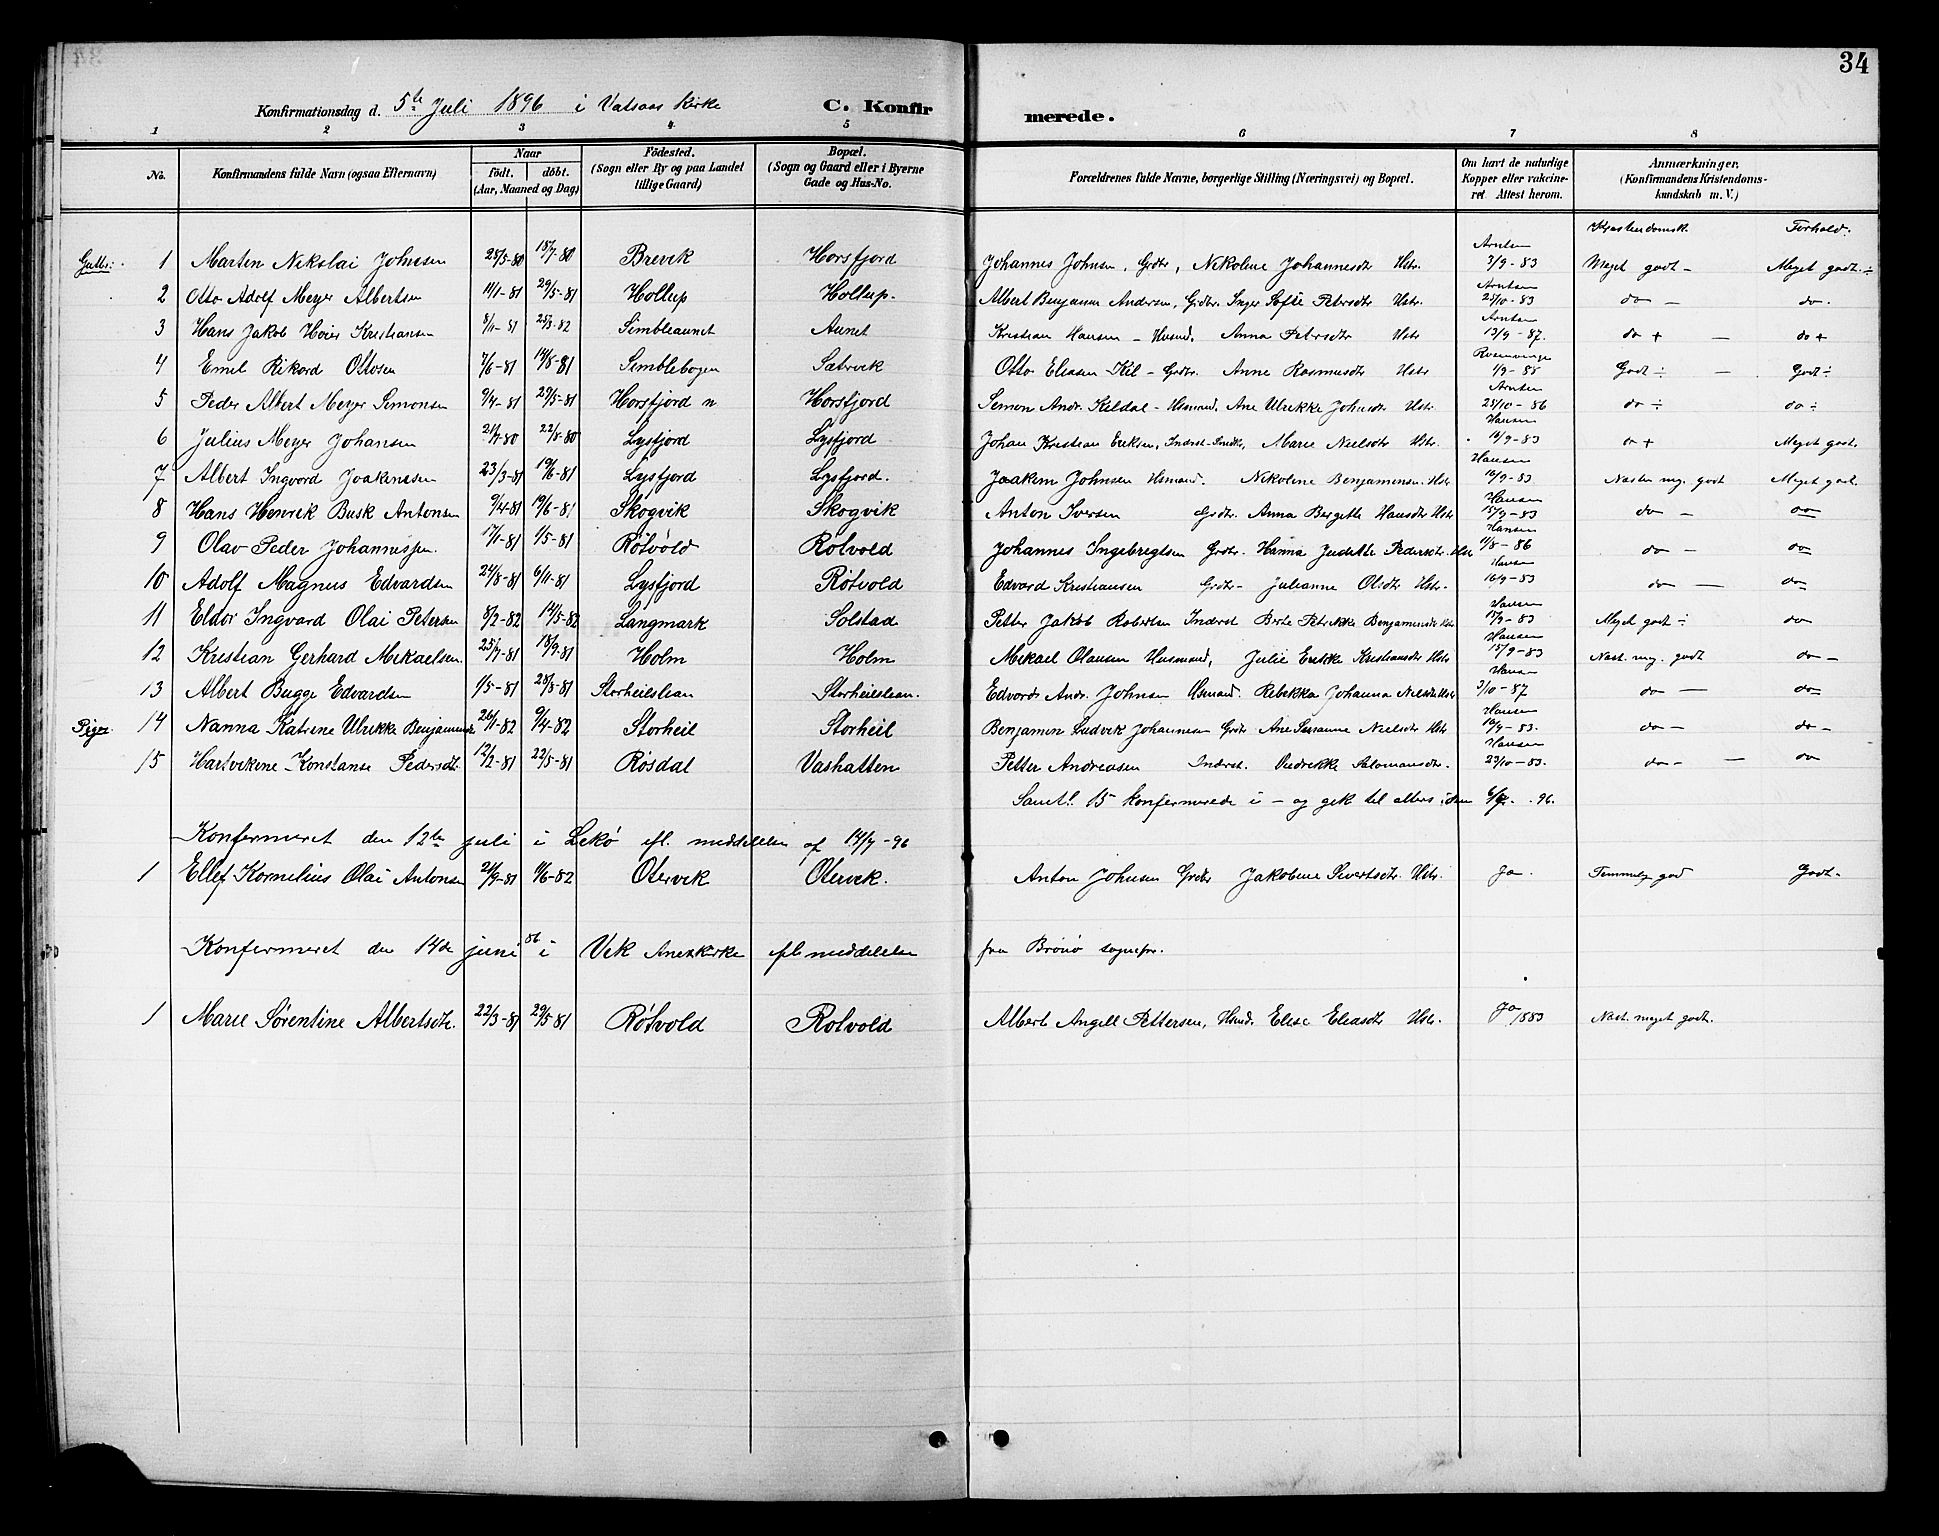 34
Konfirmationsdag d. 5te Juli 1896 i Vatsaas Kirke C. Konfirmerede.
1 2 3 4 5 6 7 8
No. Konfirmandens fulde Navn (ogsaa Efternavn) Naar født. døbt. (Aar, Maaned og Dag) Fødested. (Sogn eller By og paa Landet tillige Gaard) Bopæl. (Sogn og Gaard eller i Byerne Gade og Hus-No. Forældrenes fulde Navne, borgerlige Stilling (Næringsvei) og Bopæl. Om havt de naturlige Kopper eller vakcineret Attest herom. Anmærkninger. (Konfirmandens Kristendomskundskab m. V.)
Kristendomsk. Forhold:
Gutter: 1 Marten Nikolai Johnsen 25/5-80 18/7-80 Brevik Horsfjord Johannes Johnsen, Grdbr, Nikoline Johannesdtr Hstr. Arntsen 3/9-83 Meget godt - Meget godt ÷
2 Otto Adolf Meyer Albertsen 11/1-81 29/5-81 Hollup Hollup. Albert Benjamin Andersen, Grdbr. Inger Sofie Petersdtr Hstr. Arntsen 25/10-83 do - do.
3 Hans Jakob Høier Kristiansen 8/11-81 25/3-82 Simbleaunet Aunet Kristian Hansen - Husmd. Anna Petersdtr Hstr Arntsen 13/9-87. do + - do +
4 Emil Rikord Ottosen 7/6-81 14/8-81 Simblebogen Sætervik Otto Eliasen Kil - Grdbr. Anne Rasmusdtr Hstr Rosenvinge 1/9-88 Godt ÷ - Godt ÷
5 Peder Albert Meyer Simonsen 9/4-81 29/5-81 Horsfjord n Horsfjord Simon Andr. Kildal - Husmand. Ane Ulrikke Johnsdtr Hstr. Arntsen 25/10-86 do ÷ do ÷
6 Julius Meyer Johansen 21/4-80 22/8-80 Lysfjord Lysfjord Johan Kristian Eriksen, Inderst-Smed, Marie Nielsdtr Hstr. Hansen 16/9-83 do + Meget godt.
7 Albert Ingvord Joakimsen 23/3-81 19/6-81 Lysfjord Lysfjord. Joakim Johnsen Husmand. Nikoline Benjaminsen. Hstr Hansen 16/9-83 Nasten mg. godt Meget godt.
8 Hans Henrik Busk Antonsen 9/4-81 19/6-81 Skogvik Skogvik Anton Iversen Grdbr. Anna Bergette Hansdtr Hstr Hansen 15/9-83 do - do
9 Olav Peder Johannessen. 17/1-81 1/5-81 Røtvold Rotvold Johannes Ingebregtsen Grdbr. Hanna Juditte Pedersdtr. Hstr Hansen 11/8-86 do - do
10 Adolf Magnus Edvardsen 24/8-81 6/11-81 Lysfjord Røtvold Edvard Kristiansen Grdbr- Julianne Olsdtr Hstr. Hansen 16/9-83 do - do
11 Eldor Ingvard Olai Petersen 8/2-82 14/5-82 Langmark Solstad Petter Jakob Robertsen Inderst Berte Petrikke Benjaminsdtr Hstr Hansen 15/9-83 Meget godt ÷ do
12 Kristian Gerhard Mikaelsen. 25/7-81 18/9-81 Holm Holm Mikael Olausen Husmand, Julie Erikke Kristiansdtr Hstr Hansen 15/9-83 Nast. mg. godt do -
13 Albert Bugge Edvardsen 1/5-81 28/8-81 Storheilslean Storheilslean. Edvord Andr. Johnsen Husmand. Rebekka Johanna Nielsdtr Hstr Hansen 3/10-87 do - do
Piger. 14 Nanna Katrine Ulrikke Benjaminsdtr 26/1-82 9/4-82 Storheil Storheil Benjamin Ludvik Johannesen Grdbr Ane Susanne Nielsdtr Hstr Hansen 16/9-83. do - do -
15 Hartvikene Konstanse Pedersdtr. 12/2-81 22/5-81 Røsdal Vashatten Petter Andreasen Inderst. Diedrikke Salomonsdtr. Hansen 23/10-83. do - - do
Saml. 15 konfermerede i - og gik til alters 6/7. 96.
Konfermeret den 12te juli i Lekø efl. meddelelse af 14/7-96
1 Ellef Kornelius Olai Antonsen 21/9-81 11/6-82 Otervik Otervik. Anton Johnsen Grdbr Jakobine Sivertsdtr. Hstr. Ja. Temmelig god Godt-
Konfermeret den 14de juni 96 i Vik Anexkirke efl meddelelse fra Brønø sognepr.
1 Marie Sørentine Albertsdtr. 22/3-81 29/5-81 Røtvold Rotvold Albert Angell Pettersen, Husmd. Elise Eliasdtr Hstr. Ja 1883 Nast. meget godt.